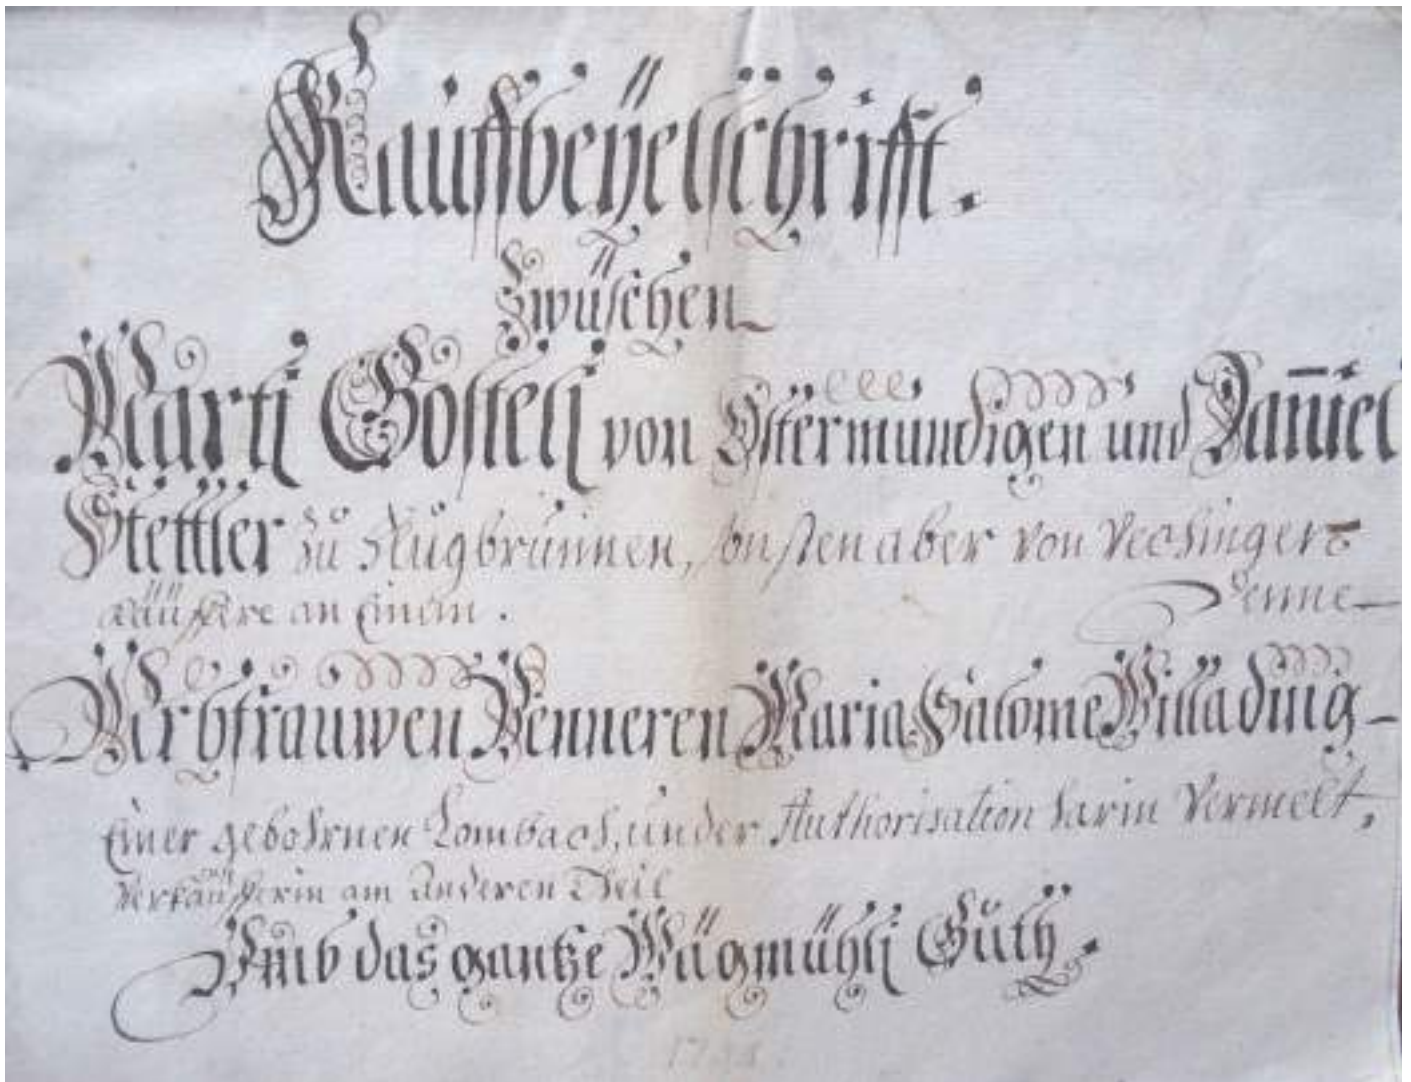 Kauffbeyelschrifft.
Zwüschen
Marti Gosteli von Ostermundigen und Daniel
Stettler zu Flugbrunnen, sonsten aber von Vechingen
Käuffere an Einem. Denne
Wohl
frauwen Venneren Maria Salome Willading
Einer gebohrnen Lombach, under Authorisation darin Vermelt,
Verkäufferin am Anderen Theil
Umb das gantze Wägmühli Guth.